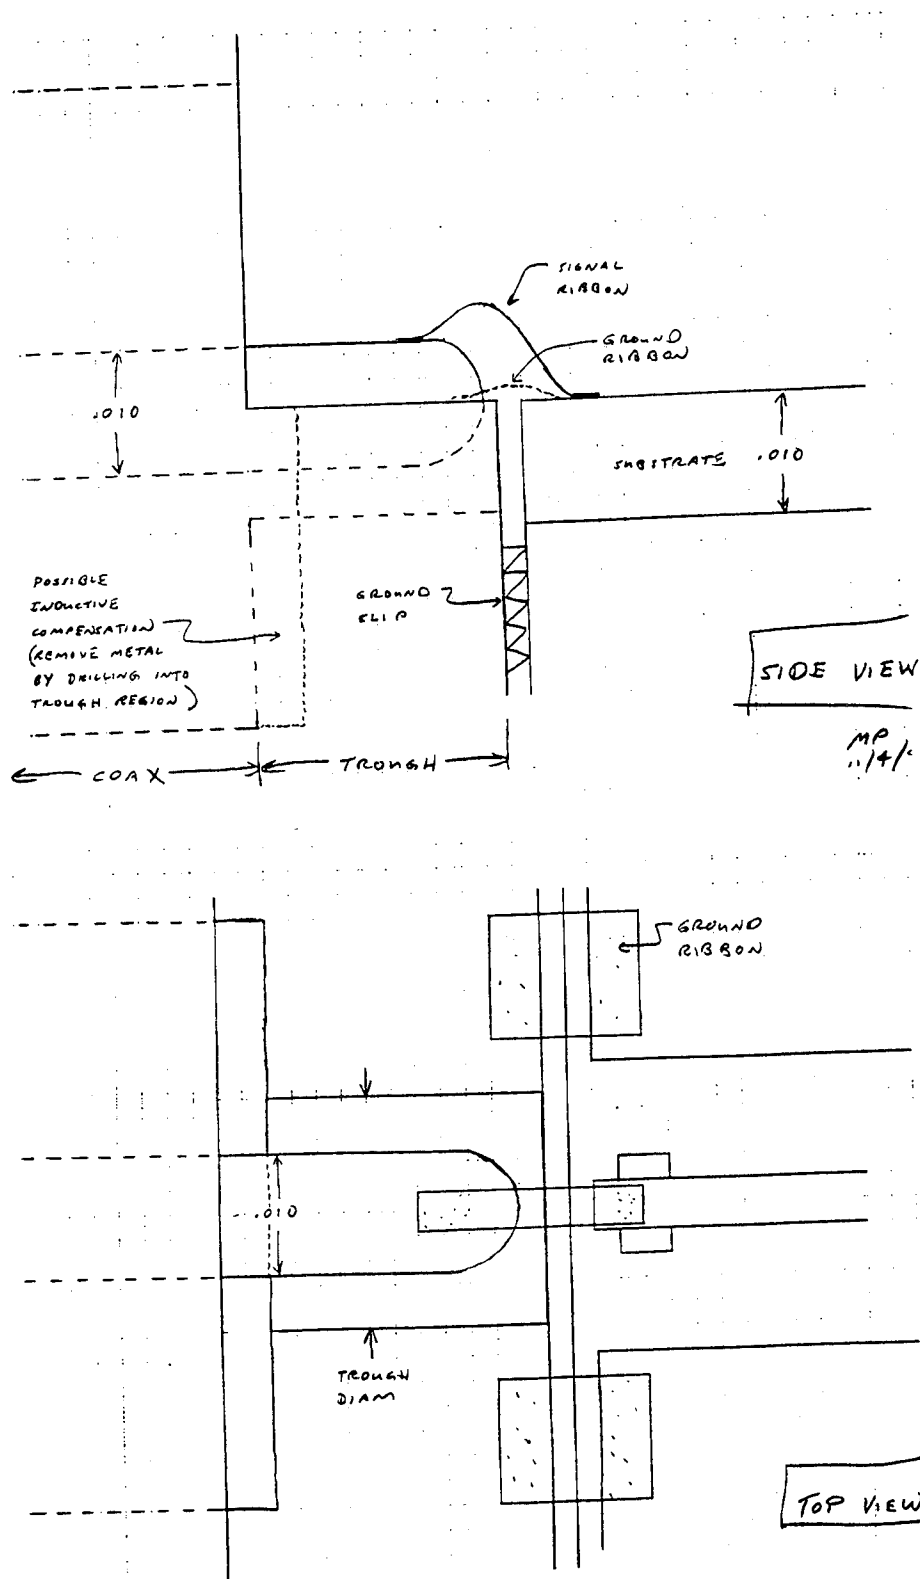 SIGNAL
RIBBON
GROUND
RIBBON
.010
SUBSTRATE .010
POSSIBLE
INDUCTIVE
COMPENSATION
(REMOVE METAL
BY DRILLING INTO
TROUGH REGION)
GROUND
SLIP
SIDE VIEW
MP
COAX
TROUGH
GROUND
RIBBON
.010
TROUGH
DIAM
TOP VIEW